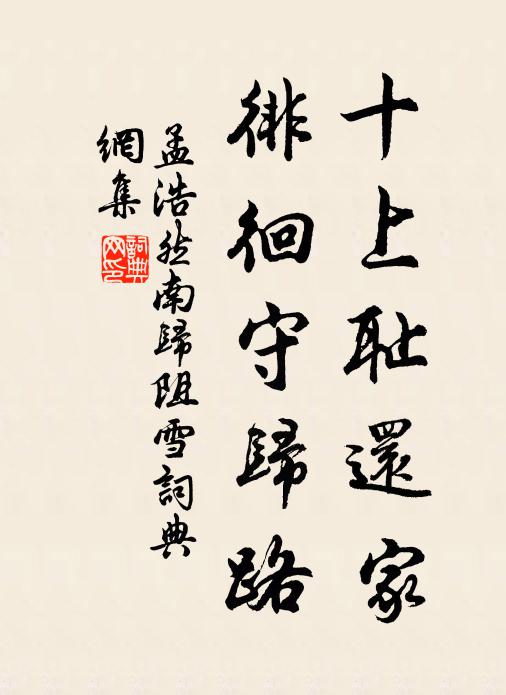 十上耻還家
徘徊守歸路
孟浩然南歸阻雪詞典
網集
詞典網印